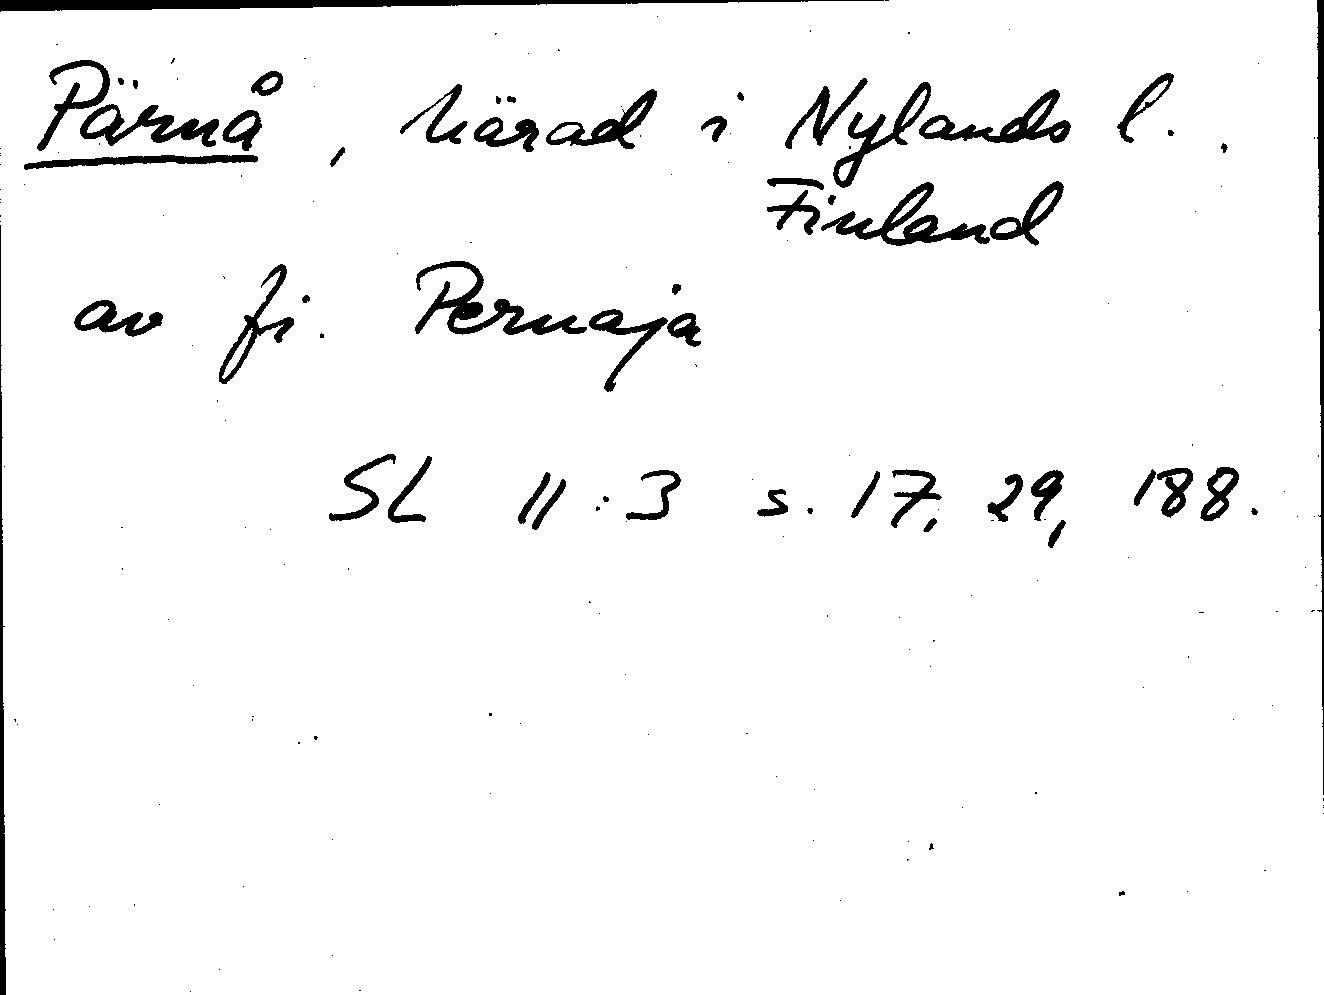 Pärnå, härad i Nylands l.,
Finland
av fi. Pernaja
SL 11:3 s. 17, 29, 188.